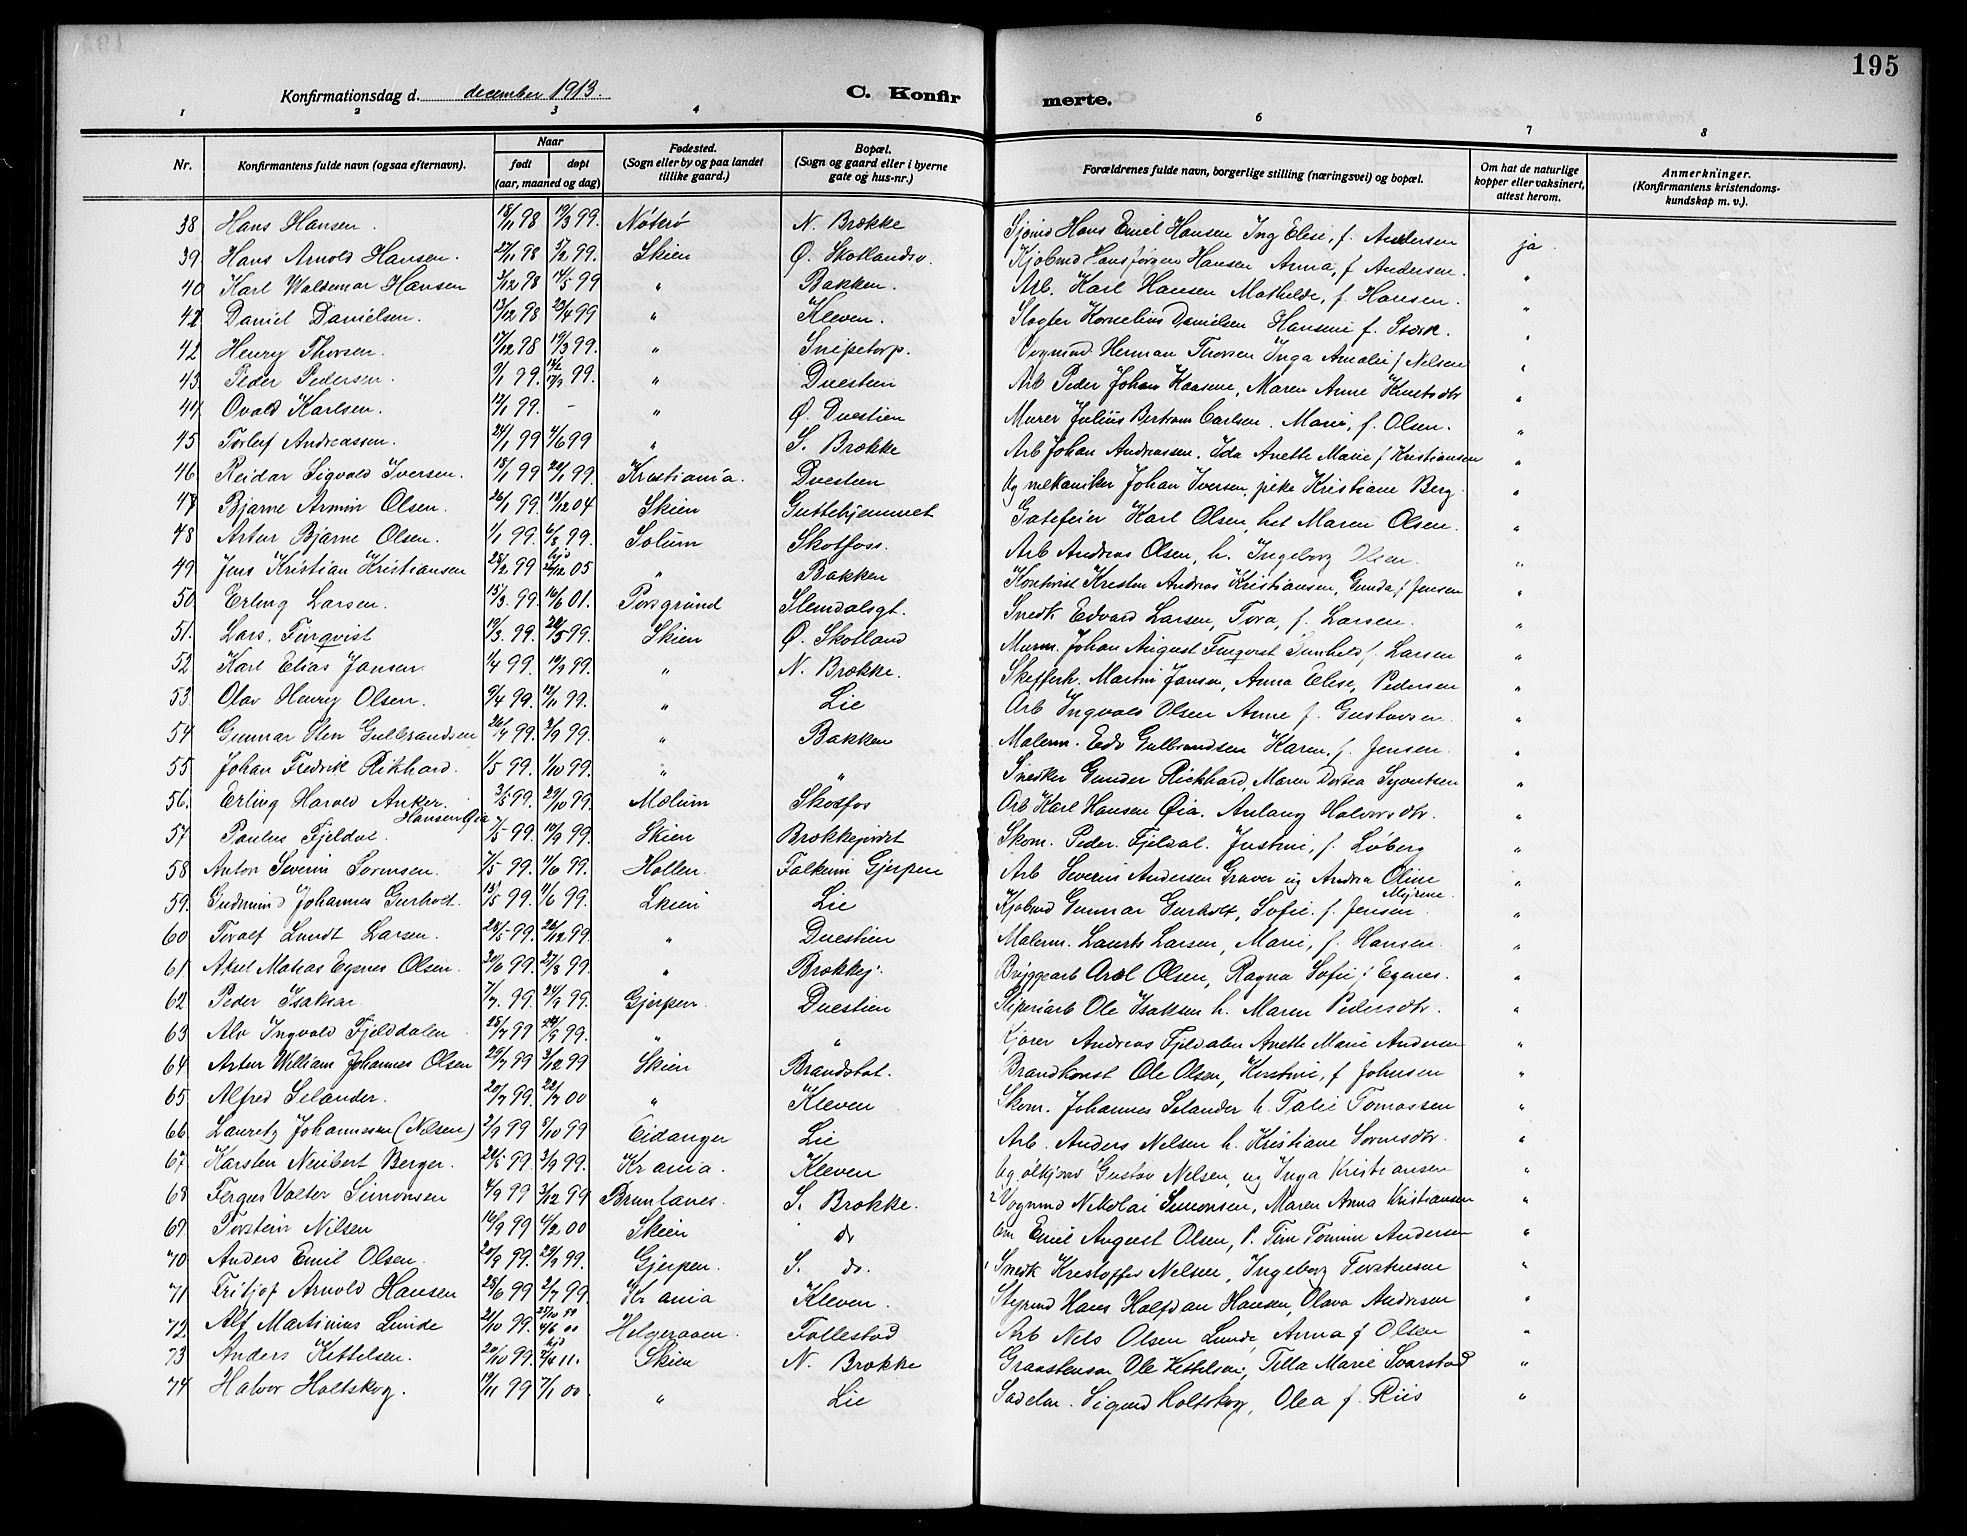 195
Konfirmationsdag d. december 1913. C. Konfirmerte.
1 2 3 4 6 7 8
Nr. Konfirmantens fulde navn (ogsaa efternavn). Naar født døpt (aar, maaned og dag) Fødested. (Sogn eller by og paa landet tillike gaard.) Bopæl. (Sogn og gaard eller i byerne gate og hus-nr.) Forældrenes fulde navn, borgerlige stilling (næringsvei) og bopæl. Om hat de naturlige kopper eller vaksinert, attest herom. Anmerkninger. (Konfirmantens kristendoms-kundskap m. v.).
38 Hans Hansen. 18/11 98 19/3 99. Nøterø N. Brække Sjømd Hans Emil Hansen Ing Elise, f. Andersen ja.
39 Hans Arnold Hansen. 27/11 98 5/2 99. Skien Ø. Skotlandsv. Kjøbmd Hans Jørgen Hansen Anna, f Andersen. "
40 Karl Waldemar Hansen 3/12 98 14/5 99 " Bakken. Arb. Karl Hansen Mathilde, f. Hansen. "
41 Daniel Danielsen. 13/12 98 23/4 99 " Kleven. Kornelius Danielsen Hansine f. "
42 Henry Thorsen. 17/12 98 19/3 99. " Snipetorp. Vognmd. Herman Thorsen Inga Amalie f Nelsen "
43 Peder Pedersen. 9/1 99. 99. " Duestien Arb Peder Johan Maren Anne Knutsdtr "
44 Ovald Karlsen. 12/1 99. - " Ø. Duestien Murer Julius Bertram Carlsen. Marie, f. Olsen. "
45 Torleif Andreassen. 24/1 99 4/6 99 " S. Brække Arb Johan Andreassen. Ida Anette Marie f Kristiansen "
46 Reidar Sigvald Iversen. 18/1 99 99. Kristiania. Duestien Ug mekaniker Johan Iversen, pike Kristiane Berg. "
47 Bjarne Armin Olsen. 26/1 99. 18/12 04 Skien Guttehjemmet Gatefeier Karl Olsen, het Maren Olsen. "
48 Artur Bjarne Olsen. 1/1 99. 6/8 99. Solum Skotfoss. Arb Andreas Olsen, h. Ingeborg "
49 Jens Kristian Kristiansen 28/2 99 hjd 26/12 05 " Bakken Kontorist Kresten Andreas Kristiansen, Gunda f Jensen "
50 Erling Larsen. 15/3. 99. 16/6 01. Porsgrund Slemdalsgt. Snedk Edvard Larsen, Tora, f. Larsen. "
51. Lars. Finqvist 19/3. 99. 28/5 99. Skien Ø. Skotland Murm. Johan August Finqvist Gunhild f. Larsen "
52 Karl Elias Jansen 1/4 99. 10/9 99. " N. Brække. Skefferh. Martin Jansen, Anna Elise, Pedersen "
53. Olav Henry Olsen. 9/4 99. 12/11 99. " Lie Arb Ingvald Olsen Anne f. Gustavsen. "
54 Gunnar Sten Gulbrandsen 26/4 99. 3/9 99. " Bakken Malerm. Edv Gulbrandsen Karen, f. Jensen. "
55. Johan Fredrik Rikhard. 1/5 99. 1/10 99. " " Snedker Gunder Rickhard, Maren Dortea Syvertsen "
56. Erling Harald Anker. Hansen Øia 3/5 99. 29/10 99. Mælum Skotfos Arb Karl Hansen Øia. Anlaug Halvorsdtr. "
57 Paulus Fjeldal. 7/5 99. 10/9 99. Skien Brækkejordet Skom. Peder. Fjeldal. Justine, f. Løberg "
58. Anton Severin Sørensen. 7/5 99. 11/6 99. Hollen. Falkum Gjerpen Arb Severin Andersen Graver ug Andrea Oline Myrene. "
59. Gudmund Johannes Gurholt. 15/5 99. 11/6 99. Skien Lie Kjøbmd Gunnar Gurholt, Sofie. f. Jensen "
60 Toralf Lundt Larsen. 28/5 99. 26/12 99. " Duestien Malerm. Laurits Larsen, Marie, f. Hansen. "
61 Aksel Matias Egenes Olsen. 20/6 99. 27/8 99. " Brækkej. Bryggearb Axel Olsen, Ragna Sofie f Egenes. "
62 Peder Isaksen. 7/7. 99. 24/9 99. Gjerpen. Duestien Sliperiarb Ole Isaksen h. Maren Pedersdtr. "
63. Alv Ingvald Fjelddalen 28/7 99 24/9 99. " " Kjører Andreas Fjeldalen Anette Marie Andersen "
64. Artur William Johannes Olsen 29/7 99 3/12 99 Skien Brandstat. Brandkonst Ole Olsen, Kirstine, f Johnsen "
65. Alfred Selander. 20/7 99. 22/7 00 " Kleven Skom. Johannes Selander h. Talie Tomassen "
66. Lauritz Johannessen (Nelsen) 2/9 99 8/10 99 Eidanger Lie Arb. Anders Nelsen h. Kristiane Sørensdtr. "
67. Karsten Neubert Berger. 99. 3/9 99. Kr ania. Kleven Ug. ølkjører Gustav Nelsen, ug Inga Kristiansen "
68 Fergus Valter Simonsen 4/9 99 3/12 99 Brunlanes. S. Brække. Vognmd Nikolai Simonsen, Maren Anna Kristiansen "
69. Torstein Nilsen 16/9 99 4/2 00 Skien do Emil August Olsen, Andersen "
70 Anders Emil Olsen. 20/9 99. 29/9 99. Gjerpen. S. do. Snedk Kristoffer Nelsen, Ingeborg Torstensen "
71 Fritjof Arnold Hansen 28/6 99 2/7 99. Kr ania Kleven. Styrmd Hans Halfdan Hansen, Olava Andersen "
72 Alf Martinius Lunde 21/10 99. 4/6 00 Helgeraaen. Follestad Arb Nels Olsen Lunde, Anna f Olsen "
73 Anders Kittelsen. 20/10 99. hjd 7/4 11. Skien N. Brække Graastensar. Ole Kettelsen, Tilla Marie Svarstad "
74 Halvor Holtskog. 19/11 99 7/1 00. " Lie Sadelm. Sigurd Holtskog, Olea f. Riis "